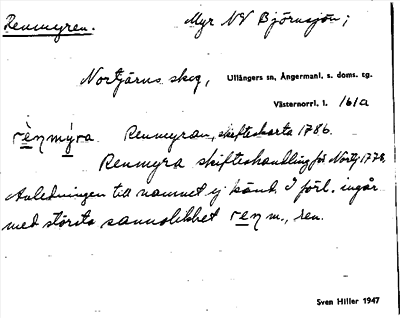 Renmyren. Myr NV Björnsjön;
Nortjärns skog, Ullångers sn, Ångermanl. s. doms. tg.
Västernorrl. l. 161a
rènmýra. Renmyran, skifteskarta 1786.
Renmyra skifteshandling för Nortj 1778.
Anledningen till namnet ej känd. I förl. ingår
med största sannolikhet ren m., ren.
Sven Hiller 1947